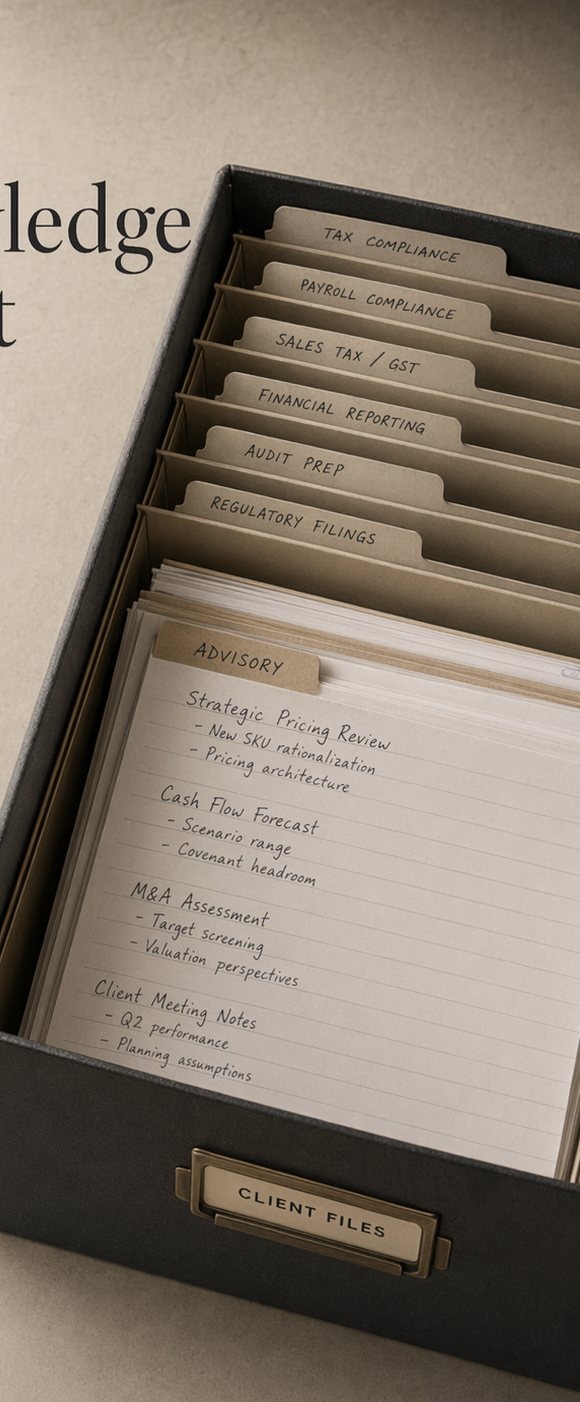 ledge
t
TAX COMPLIANCE
PAYROLL COMPLIANCE
SALES TAX / GST
FINANCIAL REPORTING
AUDIT PREP
REGULATORY FILINGS
ADVISORY
Strategic Pricing Review
- New SKU rationalization
- Pricing architecture
Cash Flow Forecast
- Scenario range
- Covenant headroom
M&A Assessment
- Target screening
- Valuation perspectives
Client Meeting Notes
- Q2 performance
- Planning assumptions
CLIENT FILES